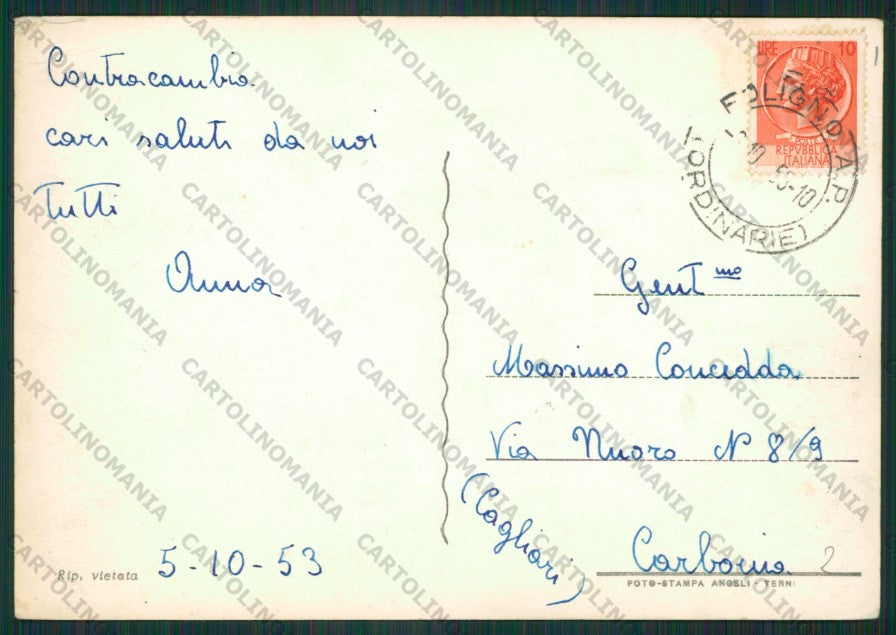 Contracambia
cari saluti da noi
tutti
Anna
5-10-53
Rip. vietata
LIRE 10
POSTE
REPVBBLICA
ITALIANA
FOLIGNO A.P.
(ORDINARIE)
Gent.mo
Massimo Concedda
Via Nuoro N 8/9
(Cagliari)
Carbonia
2
FOTO-STAMPA ANGELI - TERNI
CARTOLINOMANIA